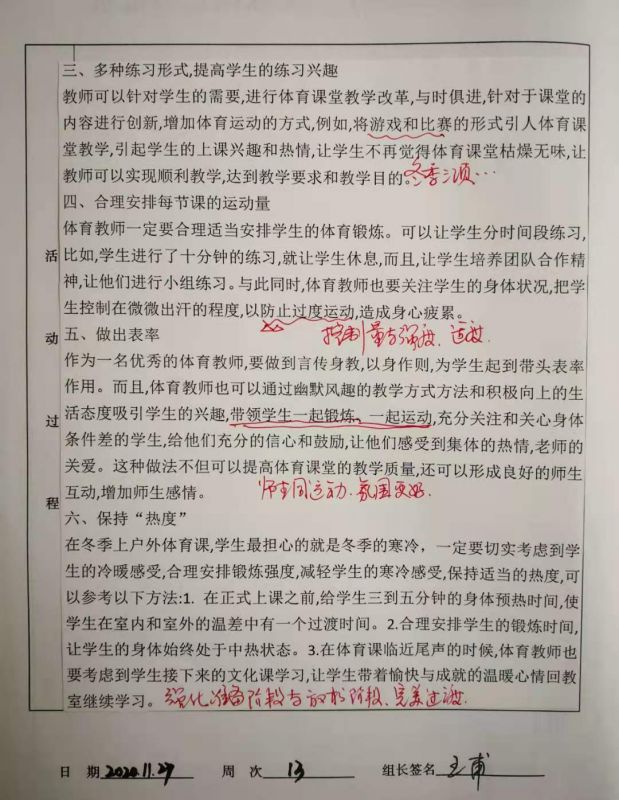 三、多种练习形式,提高学生的练习兴趣
教师可以针对学生的需要,进行体育课堂教学改革,与时俱进,针对于课堂的
内容进行创新,增加体育运动的方式,例如,将游戏和比赛的形式引人体育课
堂教学,引起学生的上课兴趣和热情,让学生不再觉得体育课堂枯燥无味,让
教师可以实现顺利教学,达到教学要求和教学目的。冬季三项…
四、合理安排每节课的运动量
体育教师一定要合理适当安排学生的体育锻炼。可以让学生分时间段练习,
比如,学生进行了十分钟的练习,就让学生休息,而且,让学生培养团队合作精
神,让他们进行小组练习。与此同时,体育教师也要关注学生的身体状况,把学
生控制在微微出汗的程度,以防止过度运动,造成身心疲累。
五、做出表率 控制量与强度、适度
作为一名优秀的体育教师,要做到言传身教,以身作则,为学生起到带头表率
作用。而且,体育教师也可以通过幽默风趣的教学方式方法和积极向上的生
活态度吸引学生的兴趣,带领学生一起锻炼、一起运动,充分关注和关心身体
条件差的学生,给他们充分的信心和鼓励,让他们感受到集体的热情,老师的
关爱。这种做法不但可以提高体育课堂的教学质量,还可以形成良好的师生
互动,增加师生感情。 师生同运动、氛围更好.
六、保持“热度”
在冬季上户外体育课,学生最担心的就是冬季的寒冷，一定要切实考虑到学
生的冷暖感受,合理安排锻炼强度,减轻学生的寒冷感受,保持适当的热度,可
以参考以下方法:1. 在正式上课之前,给学生三到五分钟的身体预热时间,使
学生在室内和室外的温差中有一个过渡时间。2.合理安排学生的锻炼时间,
让学生的身体始终处于中热状态。3.在体育课临近尾声的时候,体育教师也
要考虑到学生接下来的文化课学习,让学生带着愉快与成就的温暖心情回教
室继续学习。强化准备阶段与放松阶段、完美过渡.
活动过程
日 期 2020.11.27 周 次 13 组长签名 王甫